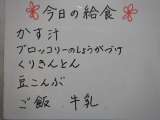 今日の給食
かす汁
ブロッコリーのしょうがづけ
くりきんとん
豆こんぶ
ご飯 牛乳